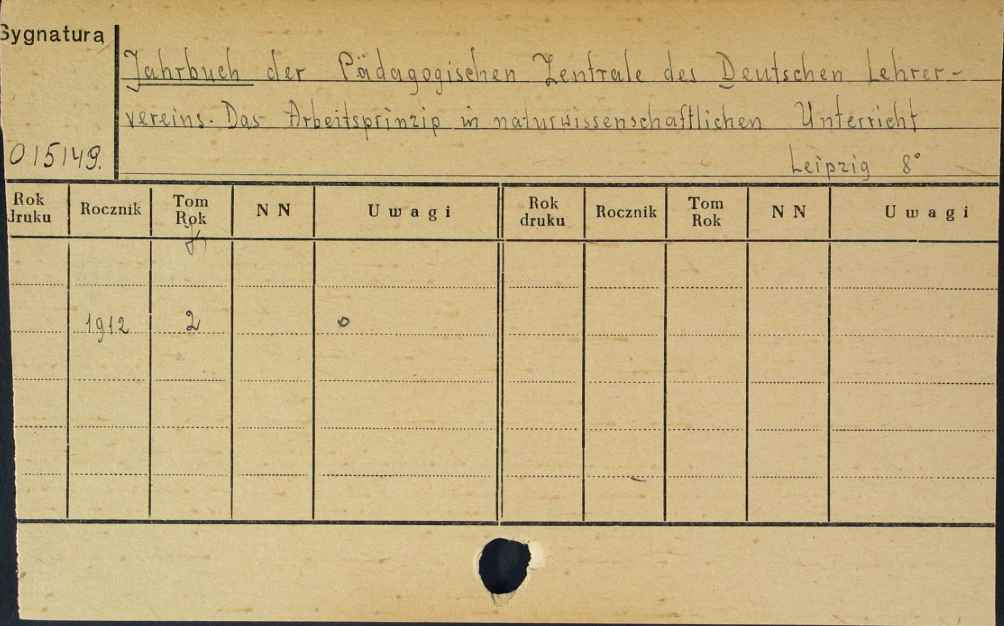 Sygnatura
Jahrbuch der Pädagogischen Zentrale des Deutschen Lehrer-
vereins. Das Arbeitsprinzip in naturwissenschaftlichen Unterricht
015149.
Leipzig 8°
Rok druku Rocznik Tom Rok NN Uwagi Rok druku Rocznik Tom Rok NN Uwagi
1912 2 o